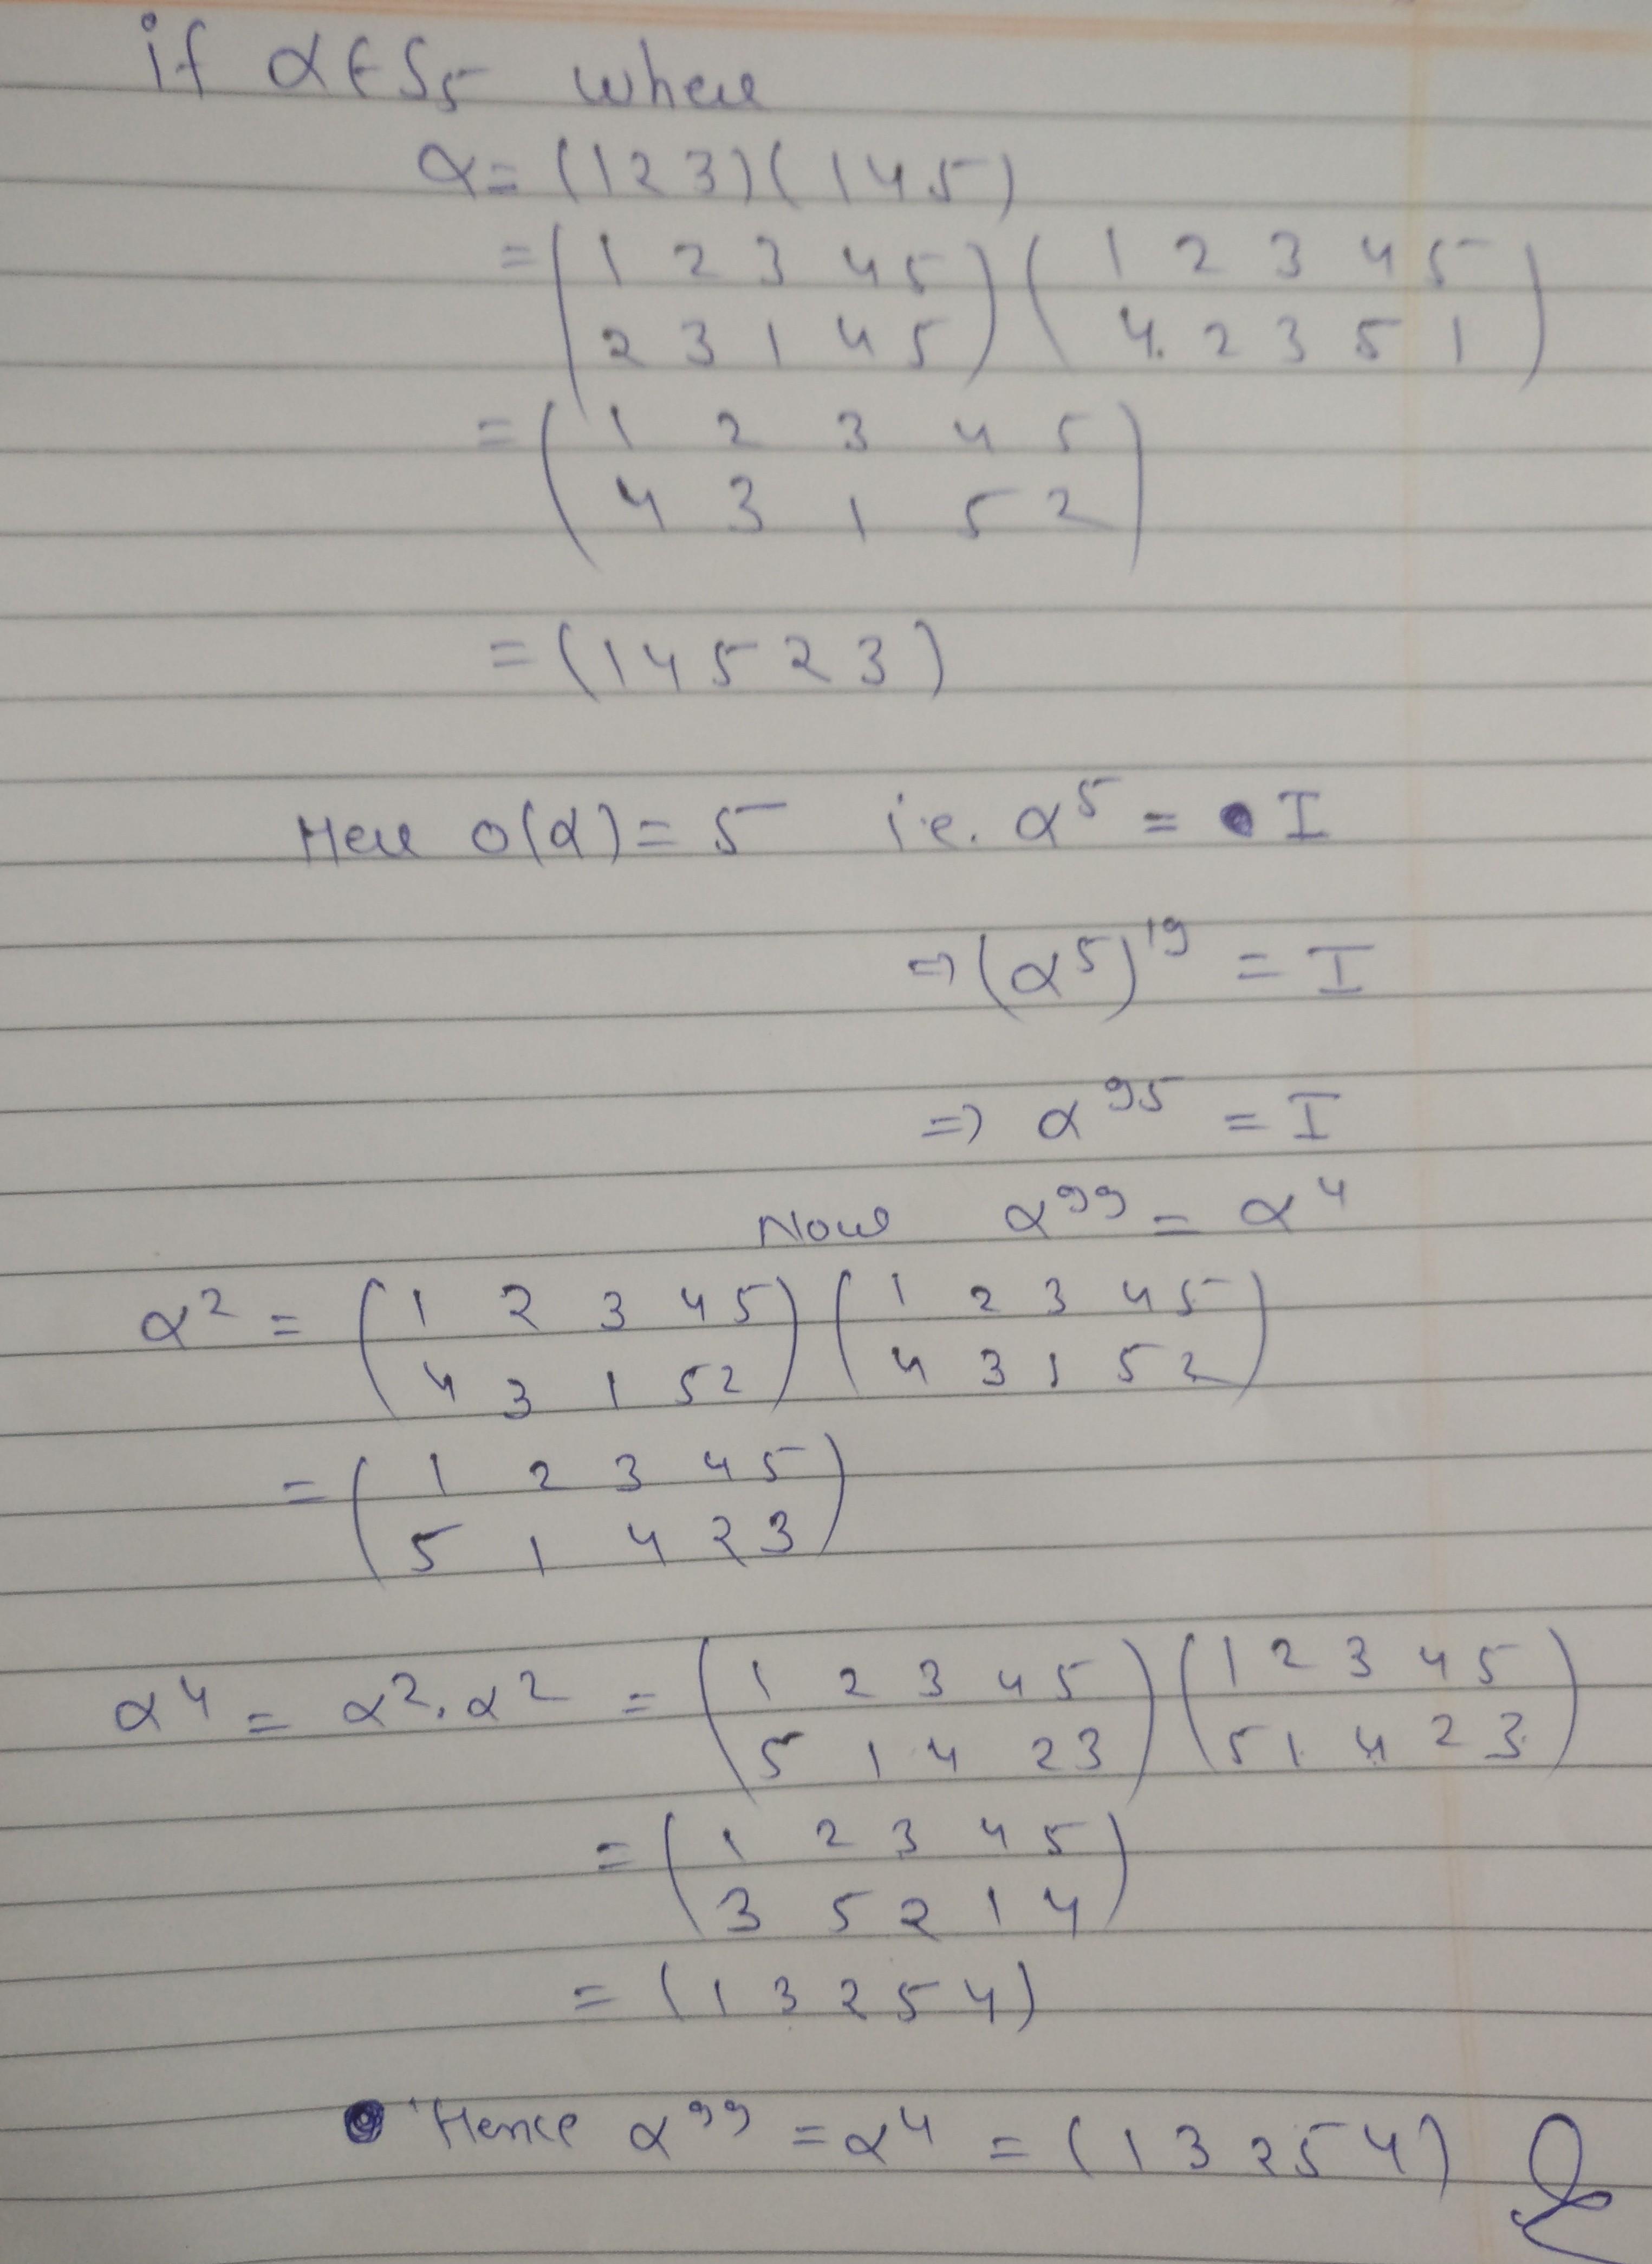 if α ∈ S5 where
α = (1 2 3)(1 4 5)
= (1 2 3 4 5) (1 2 3 4 5)
(2 3 1 4 5) (4. 2 3 5 1)
= (1 2 3 4 5)
(4 3 1 5 2)
= (1 4 5 2 3)
Here o(α) = 5 i.e. α^5 = I
⇒ (α^5)^19 = I
⇒ α^95 = I
Now α^99 = α^4
α^2 = (1 2 3 4 5) (1 2 3 4 5)
(4 3 1 5 2) (4 3 1 5 2)
= (1 2 3 4 5)
(5 1 4 2 3)
α^4 = α^2 . α^2 = (1 2 3 4 5) (1 2 3 4 5)
(5 1 4 2 3) (5 1 4 2 3)
= (1 2 3 4 5)
(3 5 2 1 4)
= (1 3 2 5 4)
Hence α^99 = α^4 = (1 3 2 5 4)